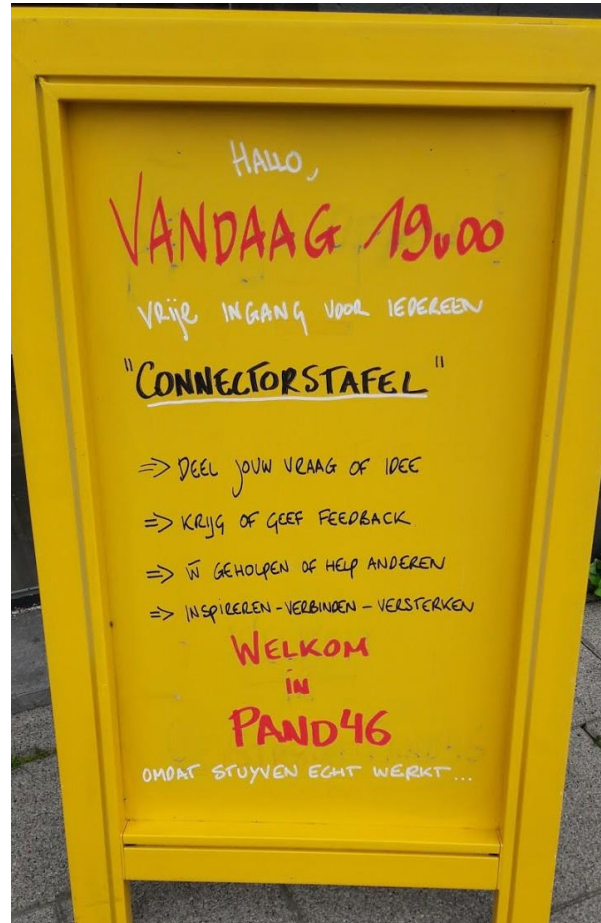 HALLO,
VANDAAG 19u00
VRIJE INGANG VOOR IEDEREEN
"CONNECTORSTAFEL"
=> DEEL JOUW VRAAG OF IDEE
=> KRIJG OF GEEF FEEDBACK
=> W̄ GEHOLPEN OF HELP ANDEREN
=> INSPIREREN - VERBINDEN - VERSTERKEN
WELKOM
IN
PAND46
OMDAT STUYVEN ECHT WERKT...